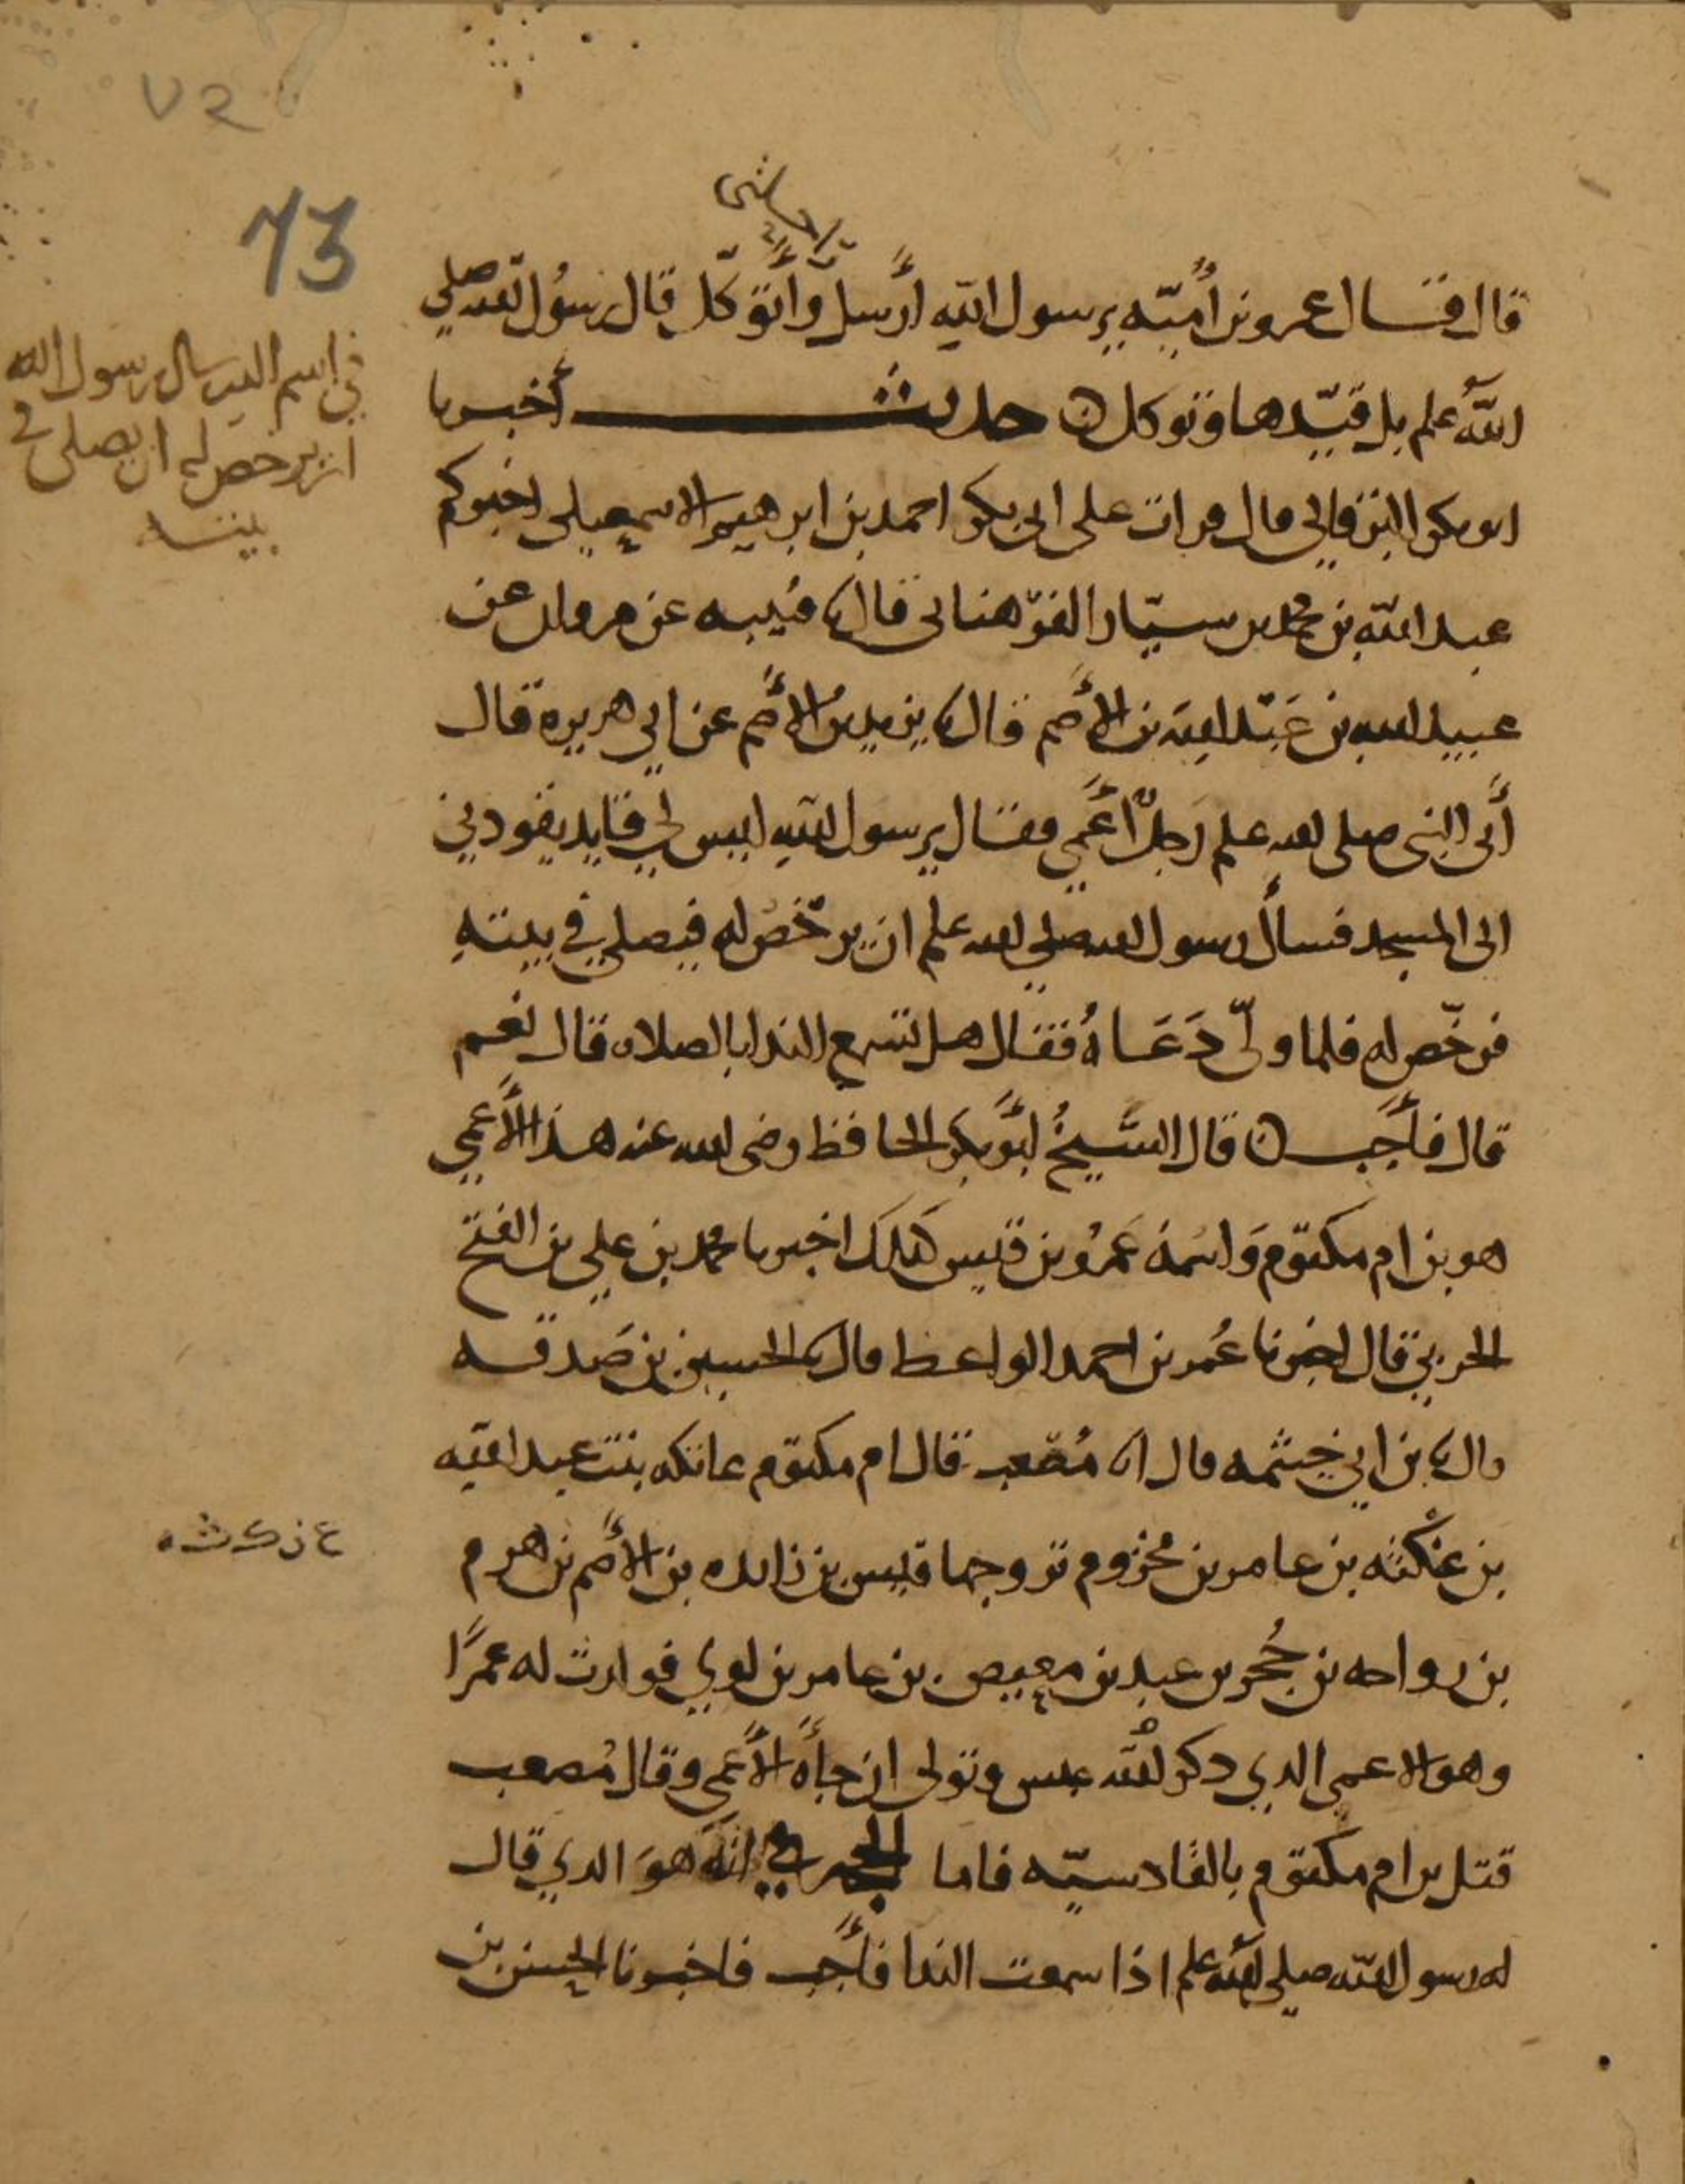 ٧٢
73
راحلتي
قال فقال عمرو بن أُميّه يرسول الله أُرسل وأتوكّل قال رسول الله صلى
الله علم بل قيّدها وتوكل ه حديث أخبرنا
ابو بكر البرقاني قال قرات على ابي بكر احمد بن ابرهيم الاسمعيلي اخبركم
عبد الله بن محمد بن سيّار الفرّهناني قال نا قتيبه عن مروان عن
عبيد الله بن عَبْد الله بن الأصم قال نا يزيد بن الأصم عن ابي هريره قال
أتى النبي صلى الله علم رجلٌ أعمى فقال يرسول الله ليس لي قايد يقودني
الى المسجد فسأل رسول الله صلى الله علم ان يرخص له فيصلي في بيته
فرخّص له فلما ولّى دَعَاهُ فقال هل تسمع الندا بالصلاه قال نعم
قال فأَجب ه قال الشيخُ ابو بكر الحافظ رضى الله عنه هذا الأعمى
هو بن ام مكتوم وَاسمه عَمْرُو بن قيس كذلك اخبرنا محمد بن علي بن الفتح
الحربي قال اخبرنا عُمر بن احمد الواعظ قال نا الحسين بن صَدقه
قال نا بن ابي خيثمه قال انا مُصْعب قال ام مكتوم عاتكه بنت عبد الله
بن عنكثه بن عامر بن مخزوم تزوجها قيس بن زايده بن الأصم بن هرم
بن رواحه بن حُجر بن عبد بن معيص بن عامر بن لوي فولدت له عمرًا
وهو الاعمى الذي ذكر الله عبس وتولى ان جاءه الأعمى وقال مُصعب
قتل بن ام مكتوم بالقادسيّه فاما الحجه في انه هوَ الذي قال
له رسول الله صلى الله علم اذا سمعت الندا فأَجب فاخبرنا الحسن بن
في اسم الذي سال رسول الله
ان يرخص له ان يصلى في
بيته
ع ن ك ث ه